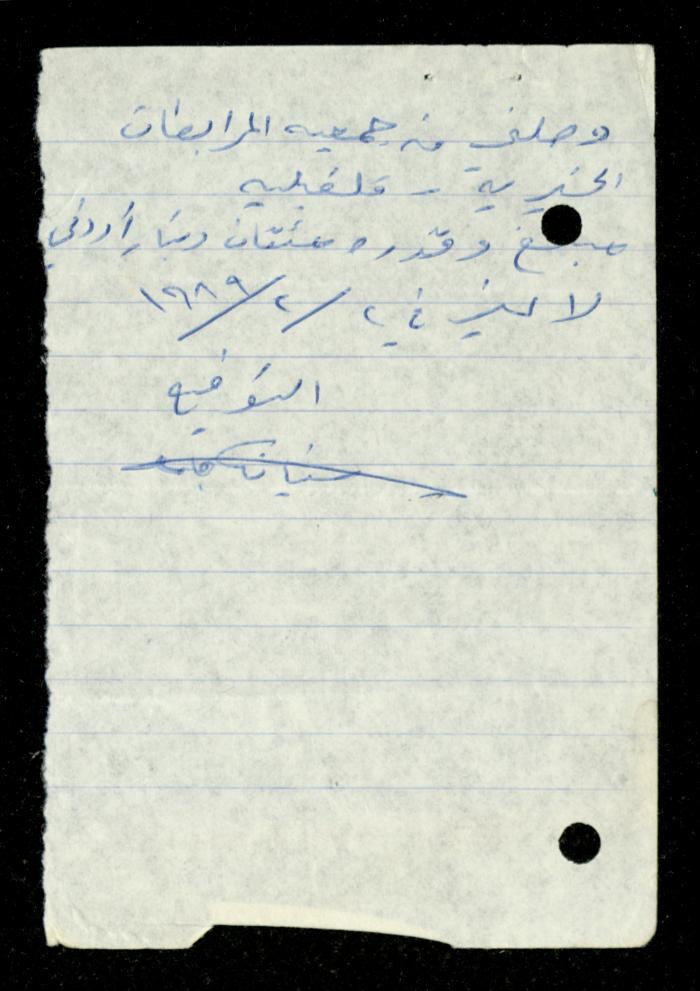 وصلني من جمعيه المرابطات
الخيرية - قلقيليه
مبلغ وقدره مئتان دينار أردني
لا غير في ٢ / ٢ / ١٩٨٩
التوقيع